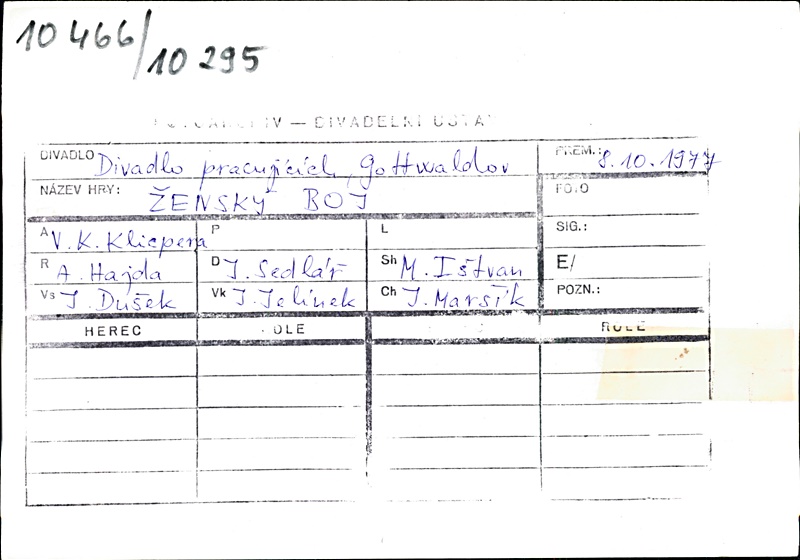 10 466/
10 295
FOTOARCHIV — DIVADELNÍ ÚSTAV
DIVADLO Divadlo pracujících, Gottwaldov PREM.: 8.10.1977
NÁZEV HRY: ŽENSKÝ BOJ FOTO
A V. K. Klicpera P L SIG.:
R A. Hajda D J. Sedlář Sh M. Ištvan E/
Vs J. Dušek Vk J. Jelínek Ch J. Maršík POZN.:
HEREC OLE ROLE